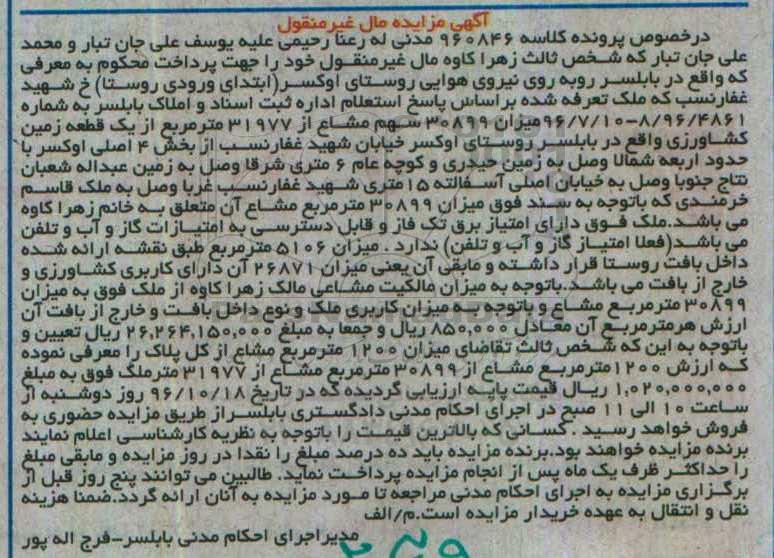 آگهی مزایده مال غیرمنقول
درخصوص پرونده کلاسه ۹۶۰۸۴۶ مدنی له رعنا رحیمی علیه یوسف علی جان تبار و محمد
علی جان تبار که شخص ثالث زهرا کاوه مال غیرمنقول خود را جهت پرداخت محکوم به معرفی
که واقع در بابلسر روبه روی نیروی هوایی روستای اوکسر(ابتدای ورودی روستا) خ شهید
غفارنسب که ملک تعرفه شده براساس پاسخ استعلام اداره ثبت اسناد و املاک بابلسر به شماره
۹۶/۷/۱۰-۸/۹۶/۴۸۶۱میزان ۳۰۸۹۹ سهم مشاع از ۳۱۹۷۷ مترمربع از یک قطعه زمین
کشاورزی واقع در بابلسر روستای اوکسر خیابان شهید غفارنسب از بخش ۴ اصلی اوکسر با
حدود اربعه شمالا وصل به زمین حیدری و کوچه عام ۶ متری شرقا وصل به زمین عبداله شعبان
نتاج جنوبا وصل به خیابان اصلی آسفالته ۱۵ متری شهید غفارنسب غربا وصل به ملک قاسم
خرمندی که باتوجه به سند فوق میزان ۳۰۸۹۹ مترمربع مشاع آن متعلق به خانم زهرا کاوه
می باشد.ملک فوق دارای امتیاز برق تک فاز و قابل دسترسی به امتیازات گاز و آب و تلفن
می باشد(فعلا امتیاز گاز و آب و تلفن) ندارد . میزان ۵۱۰۶ مترمربع طبق نقشه ارائه شده
داخل بافت روستا قرار داشته و مابقی آن یعنی میزان ۲۶۸۷۱ آن دارای کاربری کشاورزی و
خارج از بافت می باشد.باتوجه به میزان مالکیت مشاعی مالک زهرا کاوه از ملک فوق به میزان
۳۰۸۹۹ مترمربع مشاع و باتوجه به میزان کاربری ملک و نوع داخل بافت و خارج از بافت آن
ارزش هرمترمربع آن معادل ۸۵۰,۰۰۰ ریال و جمعا به مبلغ ۲۶,۲۶۴,۱۵۰,۰۰۰ ریال تعیین و
باتوجه به این که شخص ثالث تقاضای میزان ۱۲۰۰ مترمربع مشاع از کل پلاک را معرفی نموده
که ارزش ۱۲۰۰مترمربع مشاع از ۳۰۸۹۹ مترمربع مشاع از ۳۱۹۷۷ مترملک فوق به مبلغ
۱,۰۲۰,۰۰۰,۰۰۰ ریال قیمت پایه ارزیابی گردیده که در تاریخ ۹۶/۱۰/۱۸ روز دوشنبه از
ساعت ۱۰ الی ۱۱ صبح در اجرای احکام مدنی دادگستری بابلسراز طریق مزایده حضوری به
فروش خواهد رسید . کسانی که بالاترین قیمت را باتوجه به نظریه کارشناسی اعلام نمایند
برنده مزایده خواهند بود.برنده مزایده باید ده درصد مبلغ را نقدا در روز مزایده و مابقی مبلغ
را حداکثر ظرف یک ماه پس از انجام مزایده پرداخت نماید. طالبین می توانند پنج روز قبل از
برگزاری مزایده به اجرای احکام مدنی مراجعه تا مورد مزایده به آنان ارائه گردد.ضمنا هزینه
نقل و انتقال به عهده خریدار مزایده است.م/الف
مدیراجرای احکام مدنی بابلسر-فرج اله پور